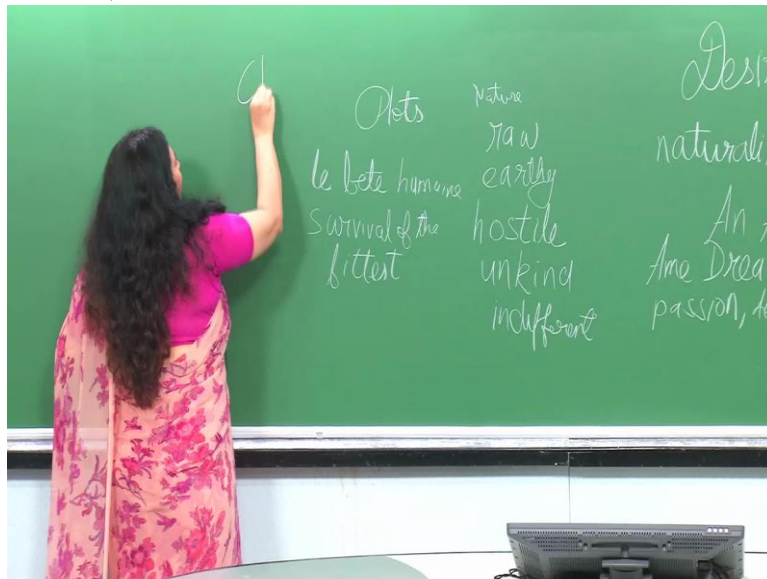 Plots
le bete humaine
survival of the
fittest
Nature
raw
earthy
hostile
unkind
indifferent
An
Ame
passion,